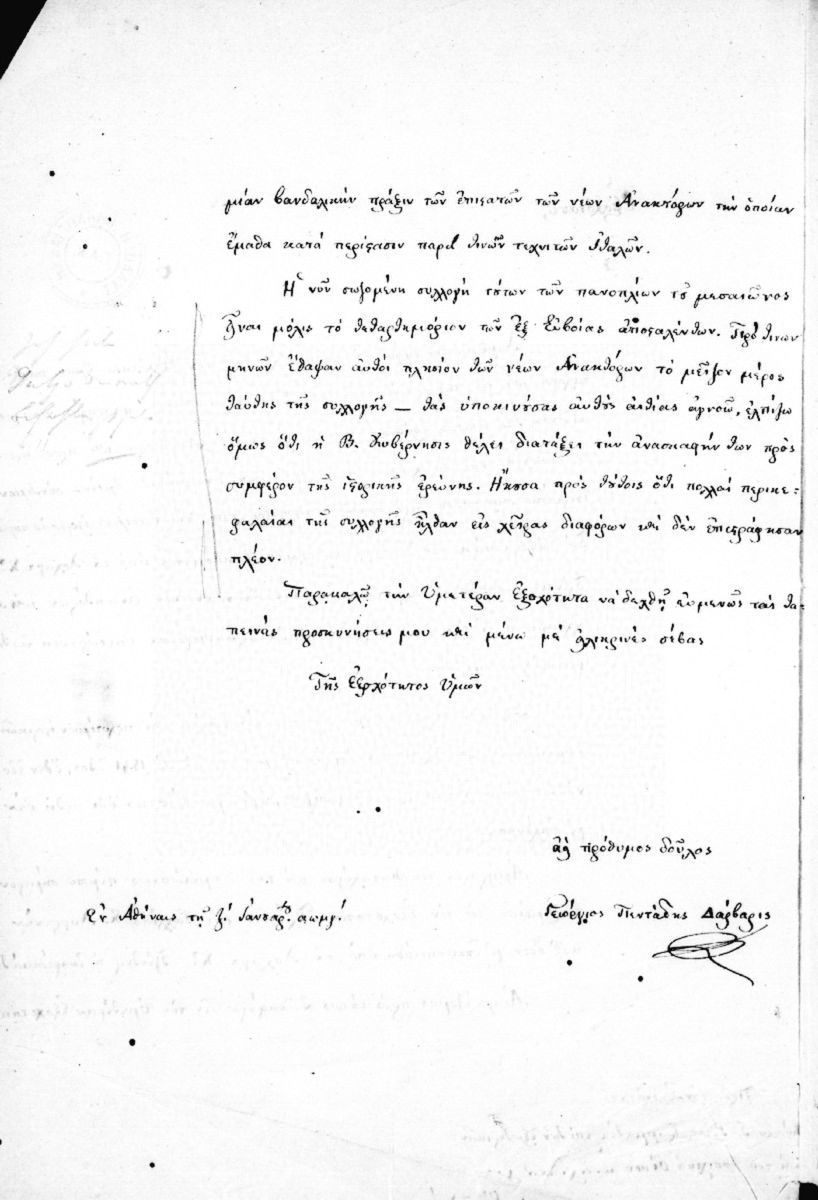 μίαν βανδαλικὴν πρᾶξιν τῶν ἐπιστατῶν τῶν νέων Ἀνακτόρων τὴν ὁποίαν
ἔμαθα κατὰ περίστασιν παρά τινῶν τεχνιτῶν Ἰταλῶν.
Ἡ νῦν σωζομένη συλλογὴ τούτων τῶν πανοπλίων τοῦ μεσαιῶνος
εἶναι μόλις τὸ τεταρτημόριον τῶν ἐξ Εὐβοίας ἀποσταλέντων. Πρὸ τινων
μηνῶν ἔθαψαν αὐτοὶ πλησίον τῶν νέων Ἀνακτόρων τὸ μεῖζον μέρος
ταύτης τῆς συλλογῆς — τὰς ὑποκινούσας αὐτοὺς αἰτίας ἀγνοῶ, ἐλπίζω
ὅμως ὅτι ἡ Β. Κυβέρνησις θέλει διατάξει τὴν ἀνασκαφήν των πρὸς
συμφέρον τῆς ἱστορικῆς ἐρεύνης. Ἤκουσα πρὸς τούτοις ὅτι πολλαὶ περικε-
φαλαίαι τῆς συλλογῆς ἦλθαν εἰς χεῖρας διαφόρων καὶ δὲν ἐπεστράφησαν
πλέον.
Παρακαλῶ τὴν Ὑμετέραν Ἐξοχότητα νὰ δεχθῇ εὐμενῶς τὰς τα-
πεινὰς προσκυνήσεις μου καὶ μένω μὲ εἰλικρινὲς σέβας
Τῆς Ἐξοχότητος Ὑμῶν
πρόθυμος δοῦλος
Ἐν Ἀθήναις τῇ Ἰανουαρ. αωμγ΄.
Γεώργιος Πεντάδης Δάρβαρις